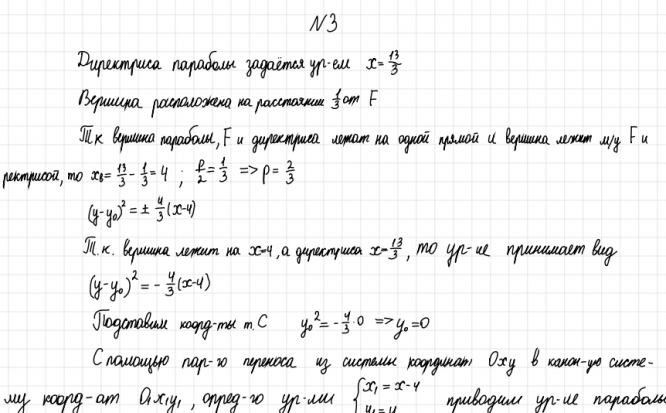 №3
Директриса параболы задаётся ур-ем x=13/3
Вершина расположена на расстоянии 1/3 от F
Т.к вершина параболы, F и директриса лежат на одной прямой и вершина лежит м/у F и
ректрисой, то x_B = 13/3 - 1/3 = 4 ; p/2 = 1/3 => p = 2/3
(y-y₀)² = ± 4/3 (x-4)
Т.к. вершина лежит на x=4, а директриса x=13/3, то ур-ие принимает вид
(y-y₀)² = - 4/3 (x-4)
Подставим коорд-ты т. C y₀² = - 4/3 · 0 => y₀ = 0
С помощью пар-го переноса из системы координат Oxy в канон-ую систе-
му коорд-ат O₁x₁y₁, опред-го ур-ями { x₁ = x-4 приводим ур-ие параболы
y₁ = y